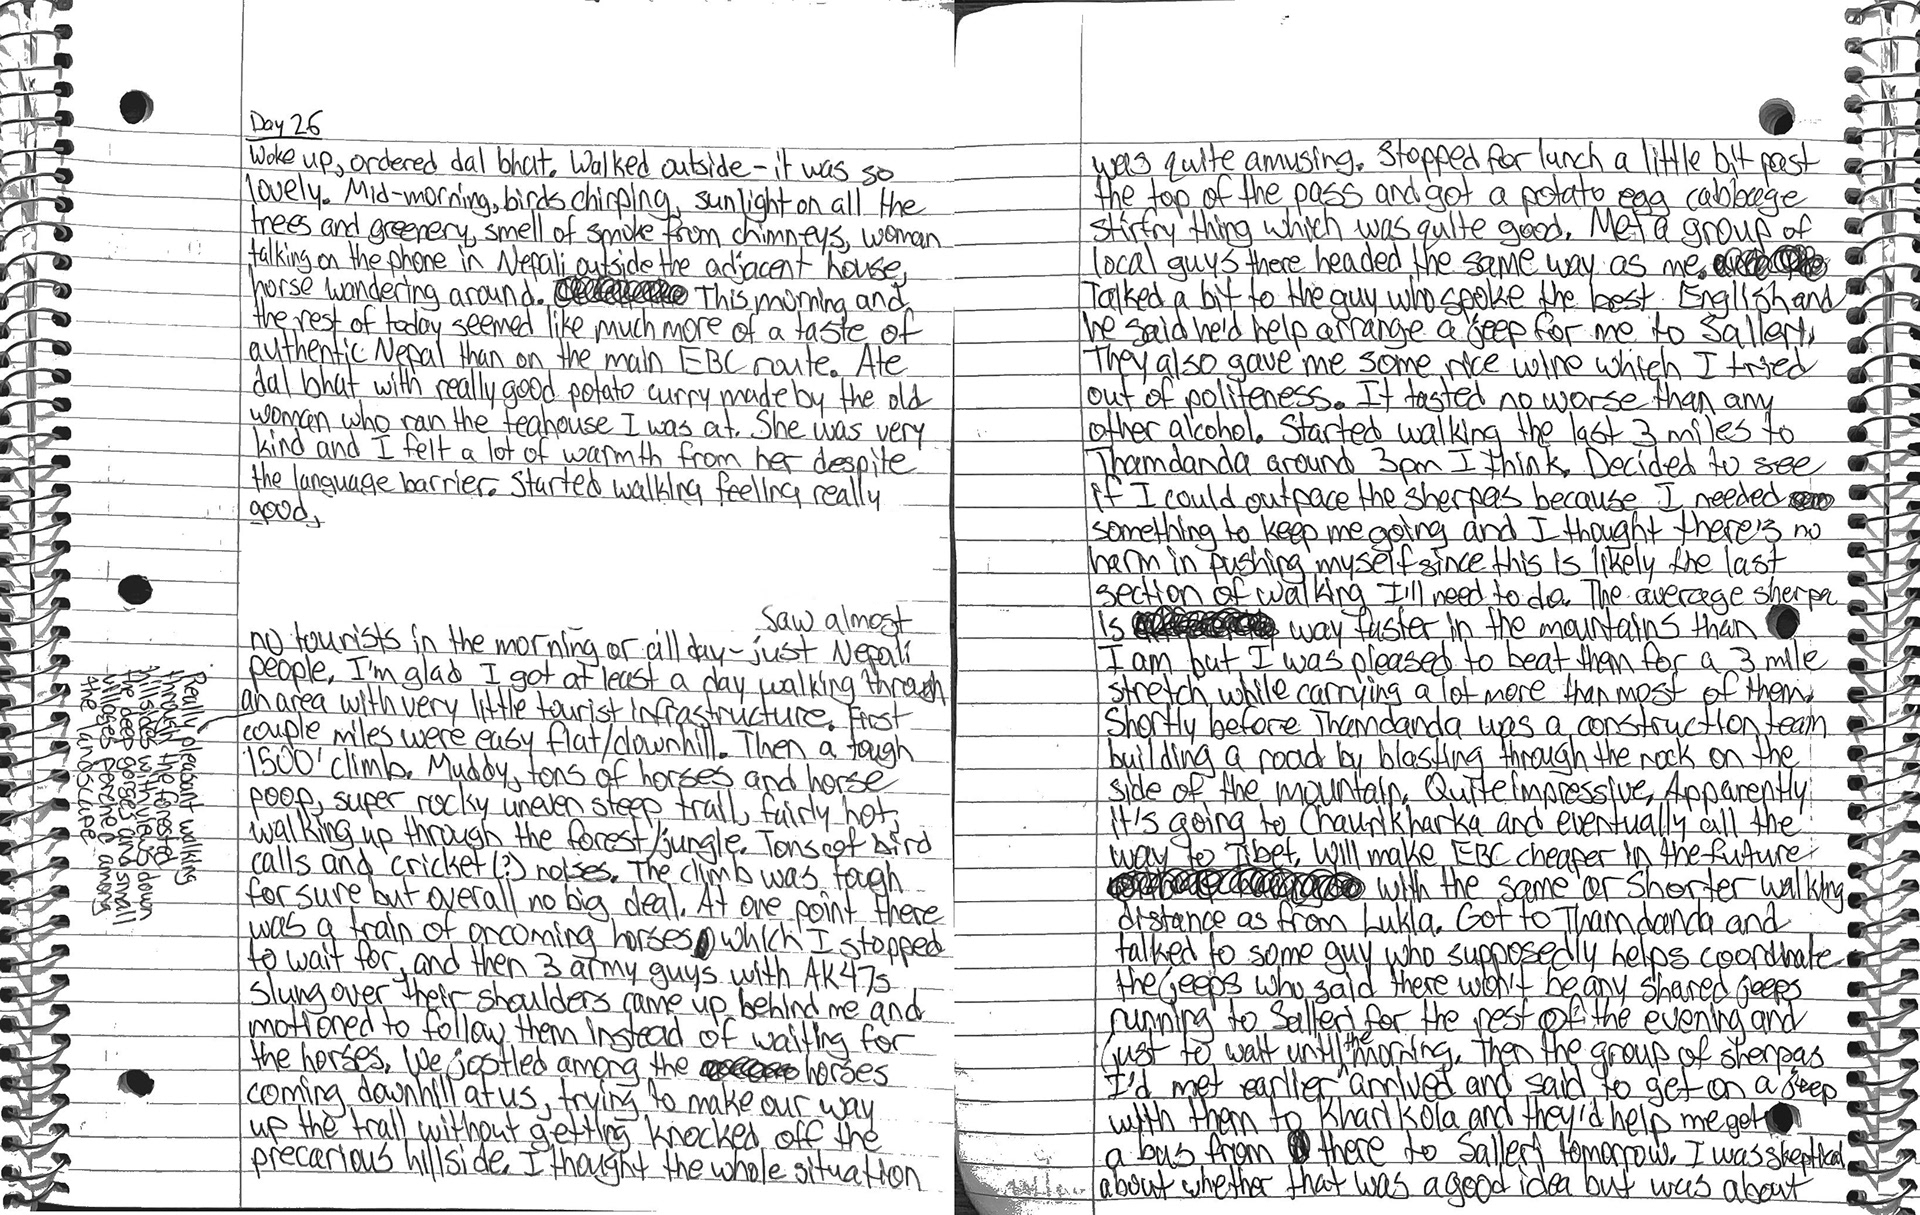 Day 26
Woke up, ordered dal bhat. Walked outside - it was so
lovely. Mid-morning, birds chirping, sunlight on all the
trees and greenery, smell of smoke from chimneys, woman
talking on the phone in Nepali outside the adjacent house,
horse wandering around. This morning and
the rest of today seemed like much more of a taste of
authentic Nepal than on the main EBC route. Ate
dal bhat with really good potato curry made by the old
woman who ran the teahouse I was at. She was very
kind and I felt a lot of warmth from her despite
the language barrier. Started walking feeling really
good,
Saw almost
no tourists in the morning or all day - just Nepali
people. I'm glad I got at least a day walking through
an area with very little tourist infrastructure. First
couple miles were easy flat/downhill. Then a tough
1500' climb. Muddy, tons of horses and horse
poop, super rocky uneven steep trail, fairly hot,
walking up through the forest/jungle. Tons of bird
calls and cricket(?) noises. The climb was tough
for sure but overall no big deal. At one point there
was a train of oncoming horses, which I stopped
to wait for, and then 3 army guys with AK47s
slung over their shoulders came up behind me and
motioned to follow them instead of waiting for
the horses. We jostled among the horses
coming downhill at us, trying to make our way
up the trail without getting knocked off the
precarious hillside. I thought the whole situation
Really pleasant walking
through the forested
hillsides with views down
the deep gorges and small
villages perched among
the landscape
was quite amusing. Stopped for lunch a little bit past
the top of the pass and got a potato egg cabbage
stirfry thing which was quite good. Met a group of
local guys there headed the same way as me.
Talked a bit to the guy who spoke the best English and
he said he'd help arrange a jeep for me to Salleri.
They also gave me some rice wine which I tried
out of politeness. It tasted no worse than any
other alcohol. Started walking the last 3 miles to
Thamdanda around 3pm I think. Decided to see
if I could outpace the sherpas because I needed
something to keep me going and I thought there's no
harm in pushing myself since this is likely the last
section of walking I'll need to do. The average sherpa
is way faster in the mountains than
I am but I was pleased to beat them for a 3 mile
stretch while carrying a lot more than most of them.
Shortly before Thamdanda was a construction team
building a road by blasting through the rock on the
side of the mountain. Quite impressive. Apparently
it's going to Chaurikharka and eventually all the
way to Tibet. Will make EBC cheaper in the future
with the same or shorter walking
distance as from Lukla. Got to Thamdanda and
talked to some guy who supposedly helps coordinate
the jeeps who said there won't be any shared jeeps
running to Salleri for the rest of the evening and
just to wait until the morning. Then the group of sherpas
I'd met earlier arrived and said to get on a jeep
with them to Kharikola and they'd help me get
a bus from there to Salleri tomorrow. I was skeptical
about whether that was a good idea but was about